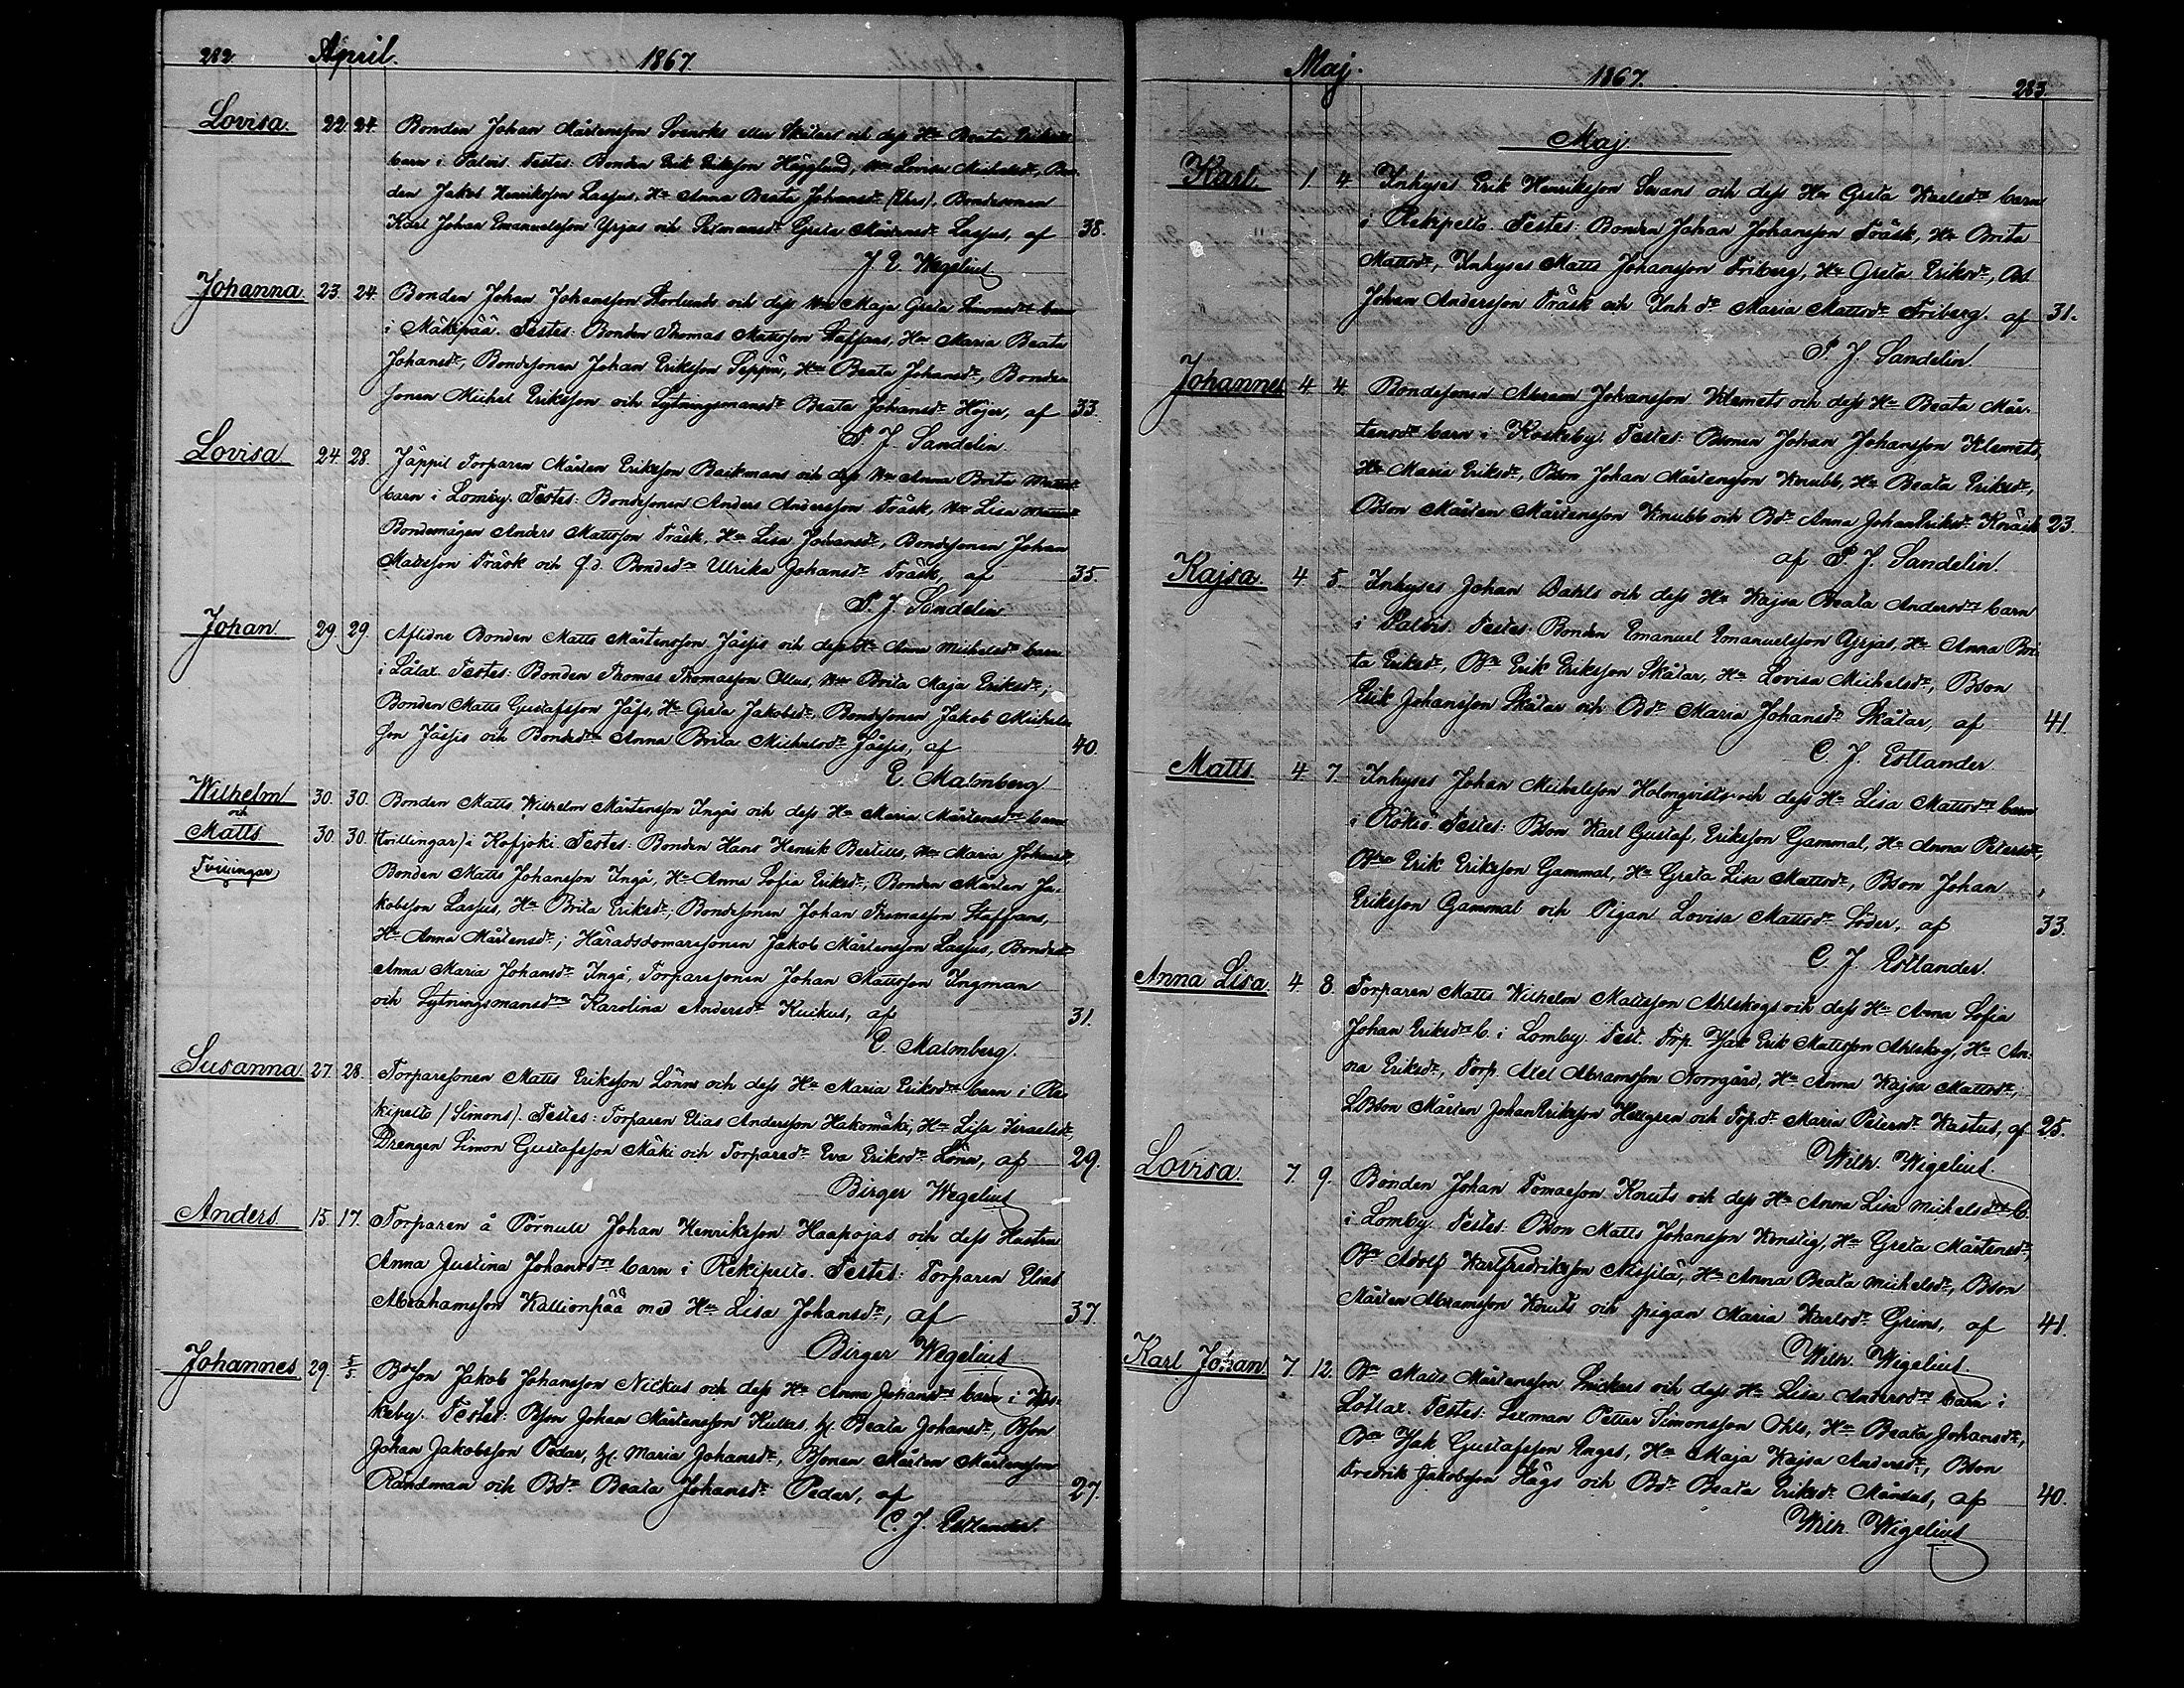 282. April. 1867.
Lovisa. 22. 24. Bonden Johan Mårtensson Svenska eller Skåtars och dess Hu Beata
barn i Palvis. Testes: Bonden Erik Eriksson Hägglund, Hu Lovisa Michelsdr, Bon-
den Jakob Henriksson Lassus, Hu Anna Beata Johansdr (Ehrs), Bondesonen
Karl Johan Emanuelsson Yrjas och Sexmansdr Greta Mårtensdr Lassus, af 38.
J. E. Wegelius
Johanna. 23. 24. Bonden Johan Johansson Storlunds och dess Hu Maja Greta Simonsdrs barn
i Mäkipää. Testes: Bonden Thomas Mattsson Staffans, Hu Maria Beata
Johansdr, Bondesonen Johan Eriksson Seppä, Hu Beata Johansdr, Bonde
sonen Michel Eriksson och Lytningsmansdr Beata Johansdr Höjer, af 33.
P. J. Sandelin.
Lovisa. 24. 28. Jäppil Torparen Mårten Eriksson Backmans och dess Hu Anna Brita Mattsdrs
barn i Lomby. Testes: Bondesonen Anders Andersson Träsk, Hu Lisa Mattsdr
Bondemågen Anders Mattsson Träsk, Hu Lisa Johansdr, Bondesonen Johan
Mattsson Träsk och f.d. Bondedn Ulrika Johansdr Träsk, af 35.
P. J. Sandelin
Johan. 29. 29. Aflidne Bonden Matts Mårtensson Jåssis och dess Hu Anna Michelsdrs barn
i Lålax. Testes: Bonden Thomas Thomasson Ollus, Hu Brita Maja Eriksdr;
Bonden Matts Gustafsson Jåfs, Hu Greta Jakobsdr, Bondesonen Jakob Michels-
son Jåssis och Bondedn Anna Brita Michelsdr Jåssis, af 40.
E. Malmberg
Wilhelm 30. 30. Bonden Matts Wilhelm Mårtensson Ingås och dess Hu Maria Mårtensdrs barn
och
Matts 30. 30. (tvillingar) i Kofjoki. Testes: Bonden Hans Henrik Bertills, Hu Maria Johansdr
Tvillingar Bonden Matts Johansson Ingå, Hu Anna Sofia Eriksdr, Bonden Mårten Ja-
kobsson Lassus, Hu Brita Eriksdr, Bondesonen Johan Thomasson Staffans,
Hu Anna Mårtensdr; Häradsdomaresonen Jakob Mårtensson Lassus, Bondedn
Anna Maria Johansdr Ingå, Torparesonen Johan Mattsson Ingman
och Lytningsmansdn Karolina Andersdr Kuikus, af 31.
E. Malmberg.
Susanna 27. 28. Torparesonen Matts Eriksson Lönns och dess Hu Maria Eriksdrs barn i Re
kipelto (Simons). Testes: Torparen Elias Andersson Hakomäki, Hu Lisa Israelsdr,
Drengen Simon Gustafsson Mäki och Torparedr Eva Eriksdr Lönn, af 29.
Birger Wegelius
Anders. 15. 17. Torparen å Pörnull Johan Henriksson Haapojas och dess Hustru
Anna Justina Johansdrs barn i Rekipelto. Testes: Torparen Elias
Abrahamsson Kallionpää med Hu Lisa Johansdr, af 37.
Birger Wegelius
Johannes 29. 5/5. Bdsson Jakob Johansson Nickus och dess Hu Anna Johansdrs barn i Kos-
keby. Testes: Bson Johan Mårtensson Kullas, H. Beata Johansdr, Bson
Johan Jakobsson Pedar, H. Maria Johansdr, Bsonen Mårten Mårtensson
Råndman och Bdr Beata Johansdr Pedar, af 27.
C. J. Estlander.
Maj. 1867. 283.
Maj.
Karl 1. 4. Inhyses Erik Henriksson Svans och dess Hu Greta Karlsdrs barn
i Rekipelto. Testes: Bonden Johan Johansson Träsk, Hu Brita
Mattsdr, Inhyses Matts Johansson Friberg, Hu Greta Eriksdr, Bs
Johan Andersson Träsk och Inh.dr Maria Mattsdr Friberg. af 31.
P. J. Sandelin
Johannes 4. 4. Bondesonen Abram Johansson Klemets och dess Hu Beata Mår-
tensdrs barn i Koskeby. Testes: Bsonen Johan Johansson Klemets,
Hu Maria Eriksdr, Bson Johan Mårtensson Knubb, Hu Beata Eriksdr,
Bson Mårten Mårtensson Knubb och Bdr Anna JohanEriksdr Knäsk 23.
af P. J. Sandelin.
Kajsa. 4. 5. Inhyses Johan Dahls och dess Hu Kajsa Beata Andersdrs barn
i Palvis. Testes: Bonden Emanuel Emanuelsson Yrjas, Hu Anna Bri-
ta Eriksdr, Bn Erik Eriksson Skåtar, Hu Lovisa Michelsdr, Bson
Erik Johansson Skåtar och Bdr Maria Johansdr Skåtar, af 41.
C. J. Estlander
Matts. 4. 7. Inhyses Johan Michelsson Holmqvists och dess Hu Lisa Mattsdrs barn
i Rökiö. Testes: Bson Karl Gustaf Eriksson Gammal, Hu Anna Petersdr,
Bson Erik Eriksson Gammal, Hu Greta Lisa Mattsdr, Bson Johan
Eriksson Gammal och Pigan Lovisa Mattsdr Söder, af 33.
C. J. Estlander.
Anna Lisa. 4. 8. Torparen Matts Wilhelm Mattsson Ahlskogs och dess Hu Anna Sofia
Johan Eriksdrs b. i Lomby. Test. Trp. Isak Erik Mattsson Ahlskog, Hu An-
na Eriksdr, Torp. Axel Abramsson Norrgård, Hu Anna Kajsa Mattsdr,
LBson Mårten JohanEriksson Hellgren och Trp.dr Maria Petersdr Kastus, af 25.
Wilh. Wigelius.
Lovisa. 7. 9. Bonden Johan Tomasson Knuts och dess Hu Anna Lisa Michelsdrs b.
i Lomby. Testes: Bson Matts Johansson Konstig, Hu Greta Mårtensdr,
Bn Adolf KarlFredriksson Nissilä, Hu Anna Beata Michelsdr, Bson
Mårten Abramsson Knuts och pigan Maria Karlsdr Grims, af 41.
Wilh. Wigelius
Karl Johan 7. 12. Bn Matts Mårtensson Snickars och dess Hu Lisa Andersdrs barn i
Lotlax. Testes: Sexman Petter Simonsson Ohls, Hu Beata Johansdr,
Bn Isak Gustafsson Enges, Hu Maja Kajsa Andersdr, Bson
Fredrik Jakobsson Hägs och Bdr Beata Eriksdr Måndus, af 40.
Wilh. Wigelius